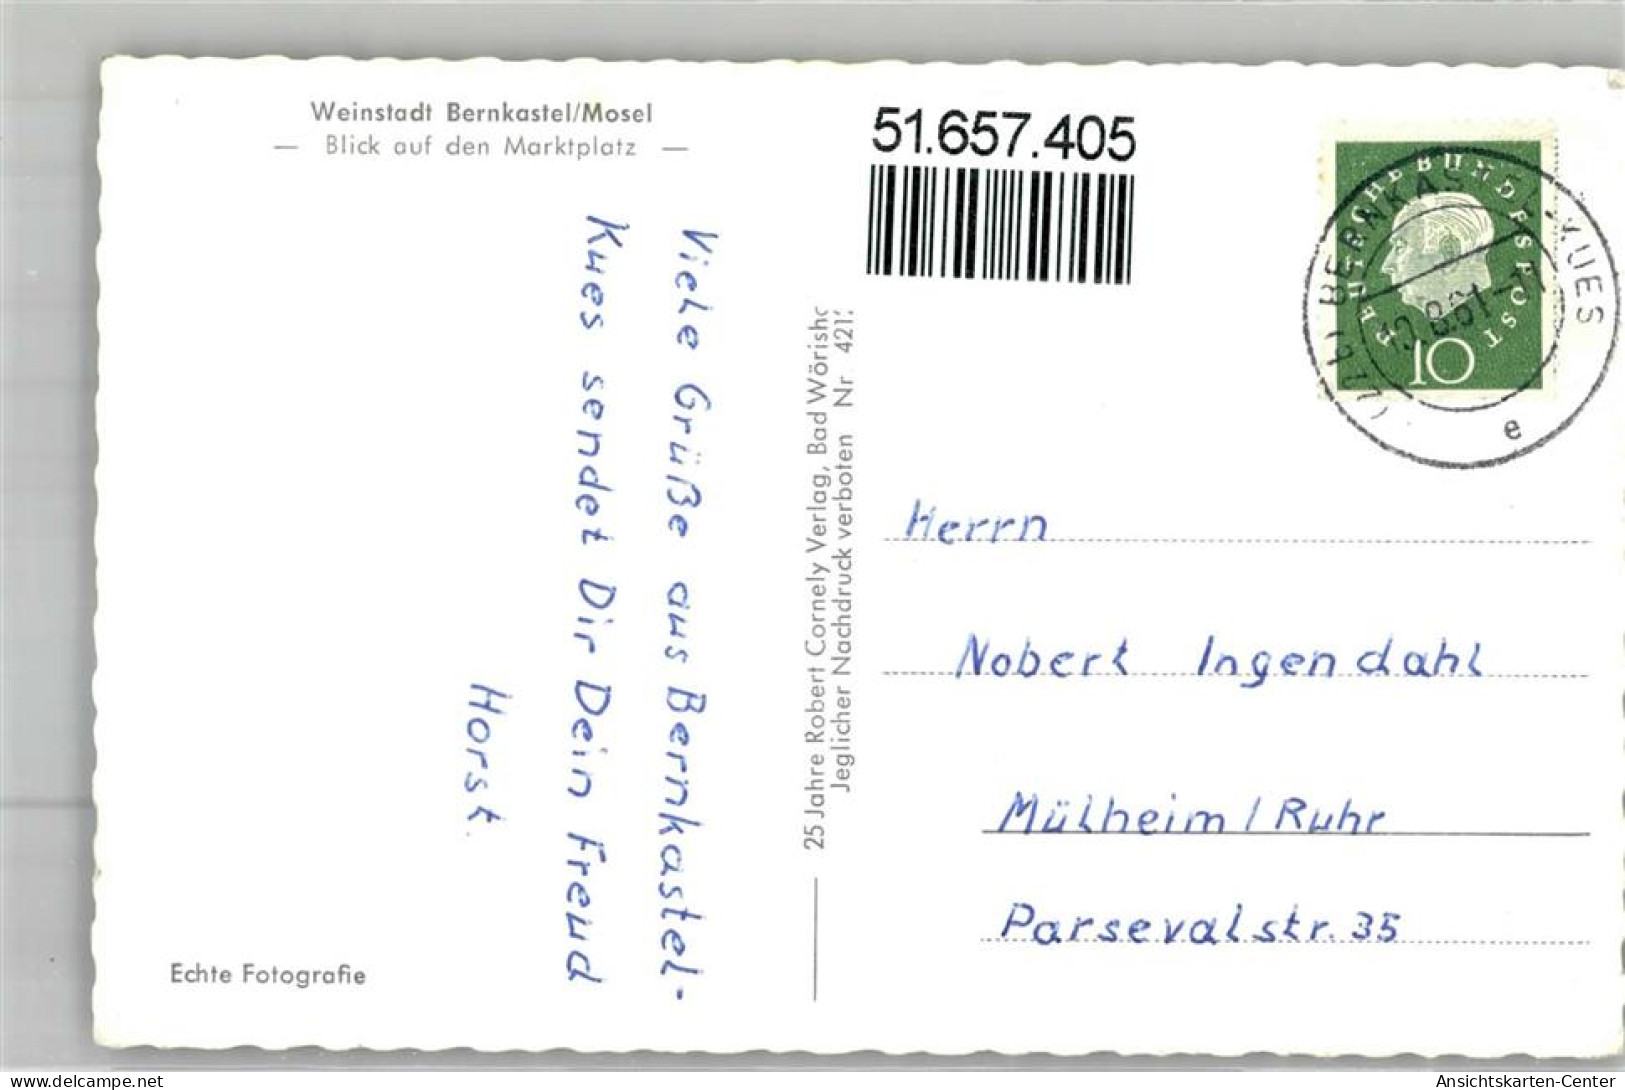 Weinstadt Bernkastel/Mosel
— Blick auf den Marktplatz —
51.657.405
DEUTSCHE BUNDESPOST
10
BERNKASTEL-KUES
e
Viele Grüße aus Bernkastel-
Kues sendet Dir Dein Freud
Horst.
25 Jahre Robert Cornely Verlag, Bad Wörisho
Jeglicher Nachdruck verboten Nr 421
Herrn
Nobert Ingendahl
Mülheim / Ruhr
Parsevalstr. 35
Echte Fotografie
delcampe.net
Ansichtskarten-Center